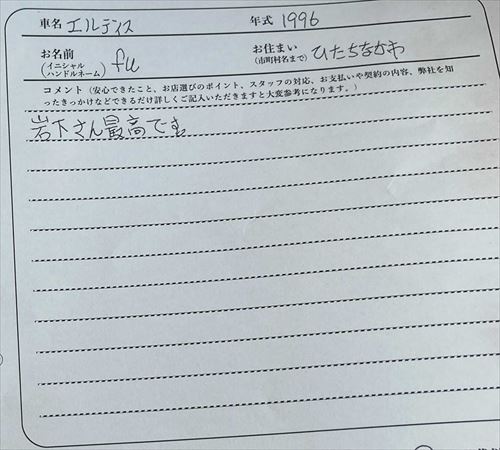 車名 エルテンス 年式 1996
お名前 (イニシャル ハンドルネーム) fu お住まい (市町村名まで) ひたちなかわ
コメント（安心できたこと、お店選びのポイント、スタッフの対応、お支払いや契約の内容、弊社を知
ったきっかけなどできるだけ詳しくご記入いただきますと大変参考になります。）
岩下さん最高です